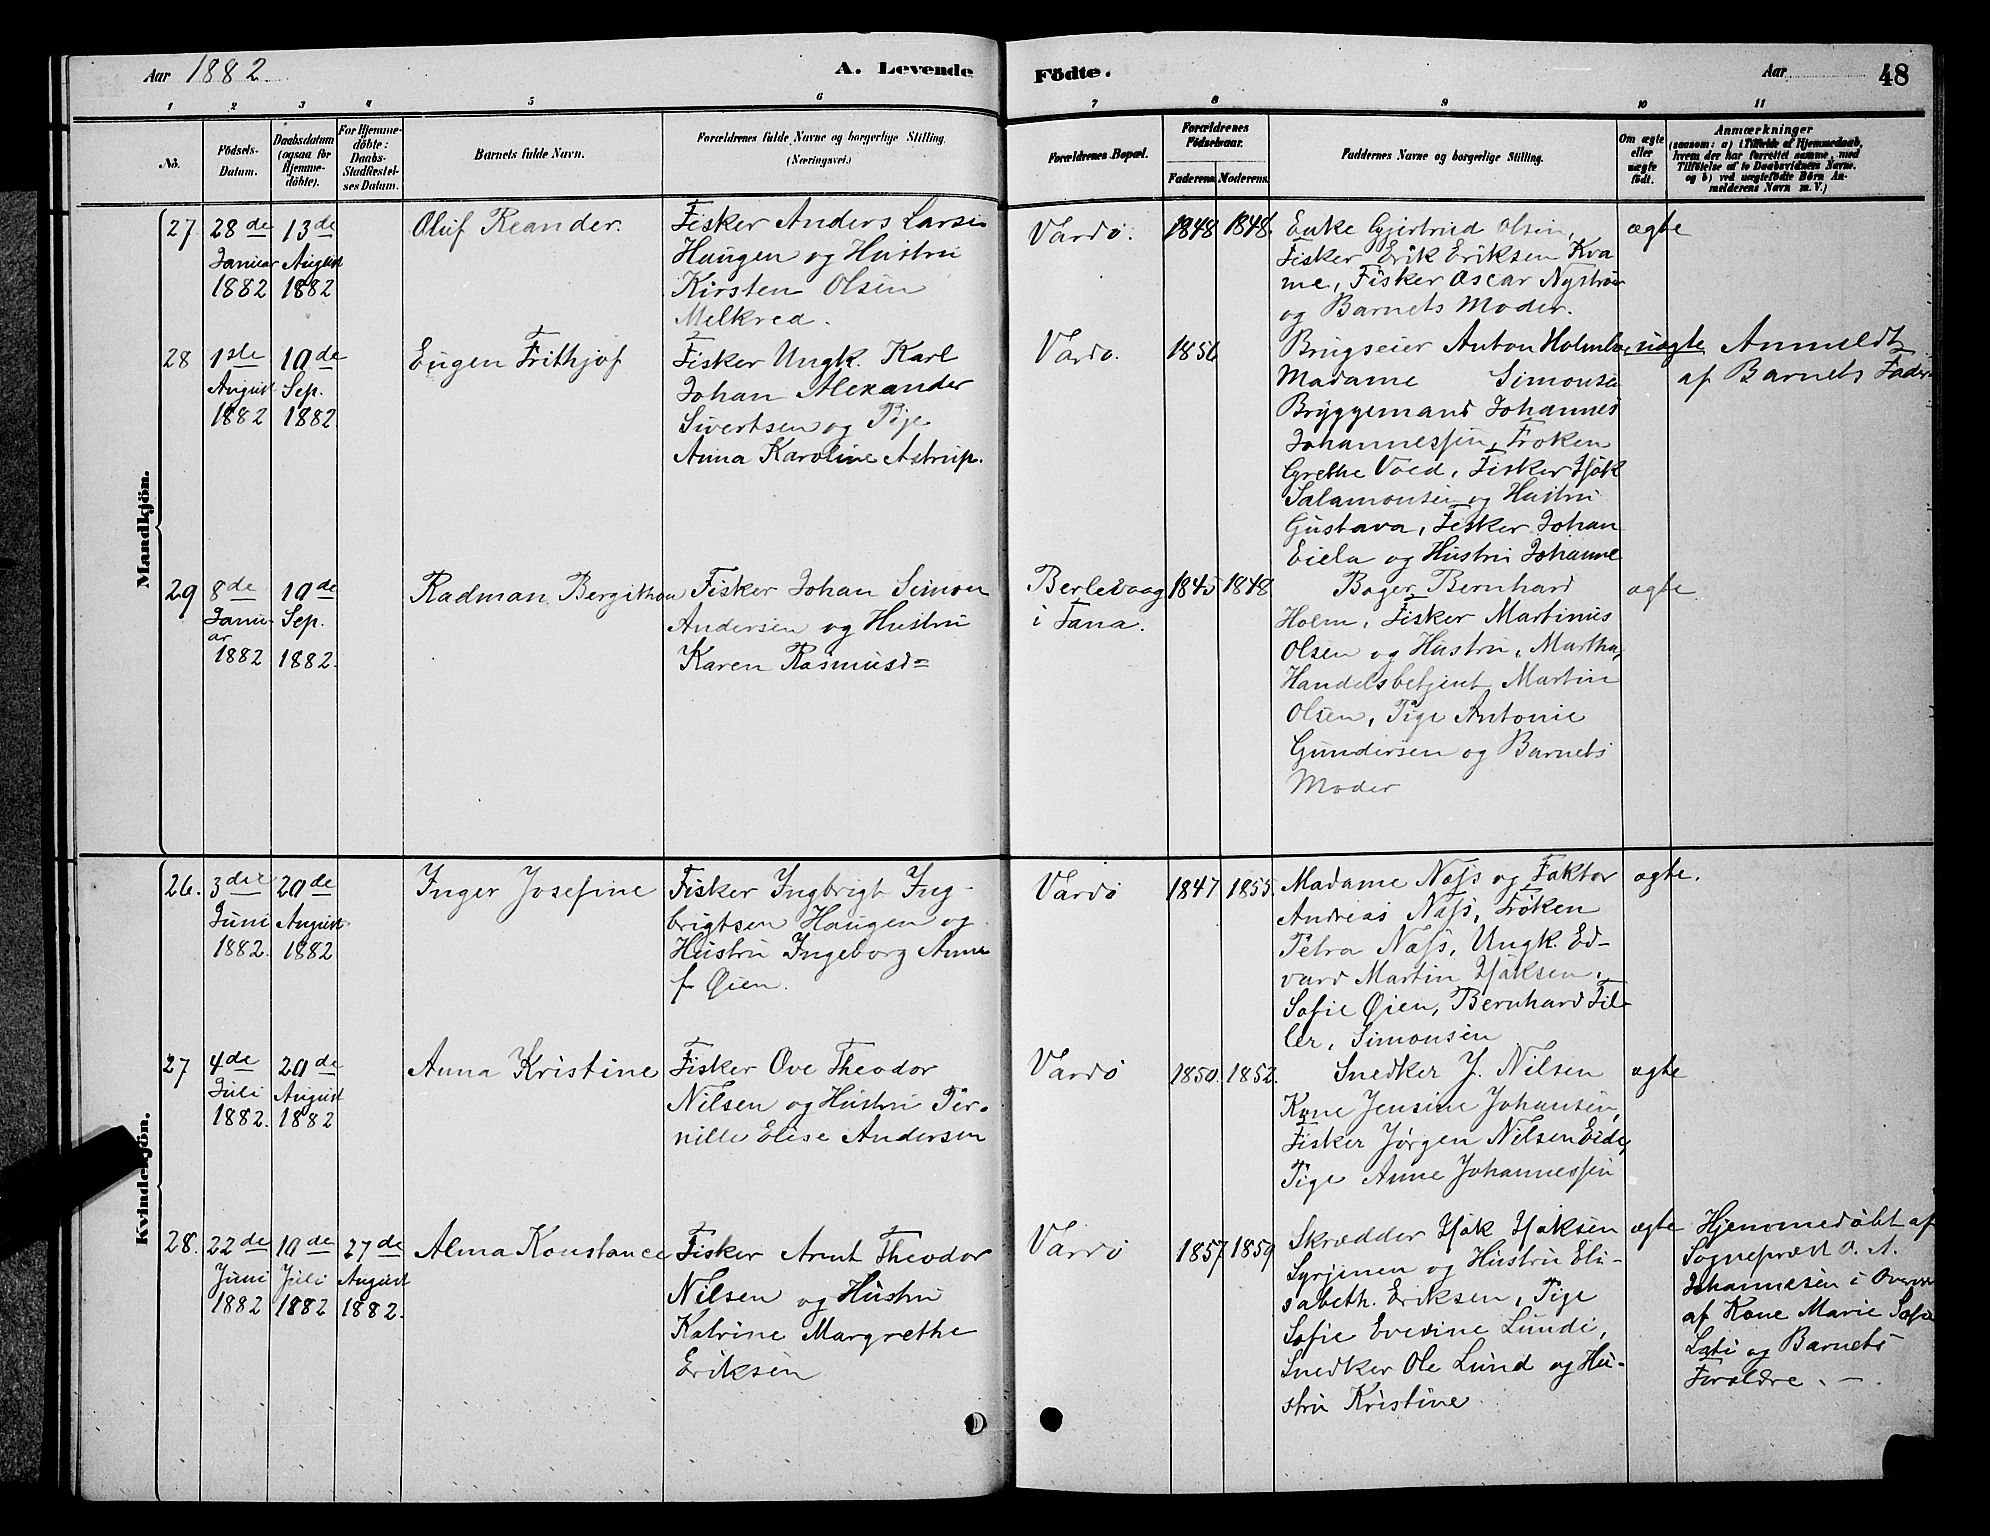 Aar 1882. A. Levende Födte. Aar 48
1 2 3 4 5 6 7 8 9 10 11
No.
Födsels-
Datum.
Daabsdatum
(ogsaa for
Hjemme-
döbte).
For Hjemme-
döbte:
Daabs-
Stadfæstel-
ses Datum.
Barnets fulde Navn.
Forældrenes fulde Navne og borgerlige Stilling.
(Næringsvei.)
Forældrenes Bopæl.
Forældrenes
Födselsaar.
Faderens. Moderens.
Faddernes Navne og borgerlige Stilling.
Om ægte
eller
uægte
födt.
Anmærkninger
(saasom: a) i Tilfælde af Hjemmedaab,
hvem der har forrettet samme, med
Tilföielse af to Daabsvidners Navne.
og b) ved uægtefödte Börn An-
melderens Navn m. V.)
Mandkjön.
27 28de
Januar
1882
13de
August
1882
Oluf Reander.
Fisker Anders Larsen
Haugen og Hustru
Kirsten Olsen
Melkrea.
Vardö.
1848 1848.
Enke Gjertrud Olsen,
Fisker Erik Eriksen Kva
me, Fisker Oscar Nyström
og Barnets Moder.
ægte
28 1ste
August
1882
10de
Sep.
1882.
Eugen Frithjof
Fisker Ungk. Karl
Johan Alexander
Sivertsen og Pige
Anna Karoline Astrup.
Vardö.
1856
Brugseier Anton Holmbo,
Madame Simonsen
Bryggemand Johannes
Johannessen, Frøken
Grethe Voed, Fisker Isak
Salamonsen og Hustru
Gustava, Fisker Johan
Eiela og Hustru Johanne
uægte
Anmeldt
af Barnets Fader
29 8de
Janu-
ar
1882
10de
Sep.
1882.
Radman Bergithon
Fisker Johan Simon
Andersen og Hustru
Karen Rasmusd=
Berlevaag
i Tana.
1845 1848
Bager Bernhard
Holm, Fisker Martinus
Olsen og Hustru, Martha,
Handelsbetjent Martin
Olsen, Pige Antonie
Gundersen og Barnets
Moder
ægte
Kvindekjön.
26. 3die
Juni
1882.
20de
August
1882
Inger Josefine
Fisker Ingbrigt Ing-
brigtsen Haugen og
Hustru Ingeborg Anna
f Øien.
Vardö
1847 1855.
Madame Næss og Faktor
Andreas Næss, Frøken
Petra Næss, Ungk. Ed-
vard Martin Isaksen,
Sofie Øien, Bernhard Fil-
ler, Simonsen
ægte.
27 4de
Juli
1882.
20de
August
1882
Anna Kristine
Fisker Ove Theodor
Nilsen og Hustru Per-
nille Elise Andersen
Vardö
1850. 1852.
Snedker J. Nilsen
Kone Jensine Johansen,
Fisker Jørgen Nilsen Eide,
Pige Anne Johannessen
ægte
28. 22de
Juni
1882
10de
Juli
1882
27de
August
1882.
Alma Konstance
Fisker Arnt Theodor
Nilsen og Hustru
Katrine Margrethe
Eriksen
Vardö
1857 1859
Skrædder Isak Isaksen
Syrjenen og Hustru Eli-
sabeth. Eriksen, Pige
Sofie Evevine Lunde,
Snedker Ole Lund og Hu-
stru Kristine
ægte
Hjemmedöbt af
Sognepræst O. A.
Johannesen i Overvær
af Kone Marie Sofie
og Barnets
Forældre. —